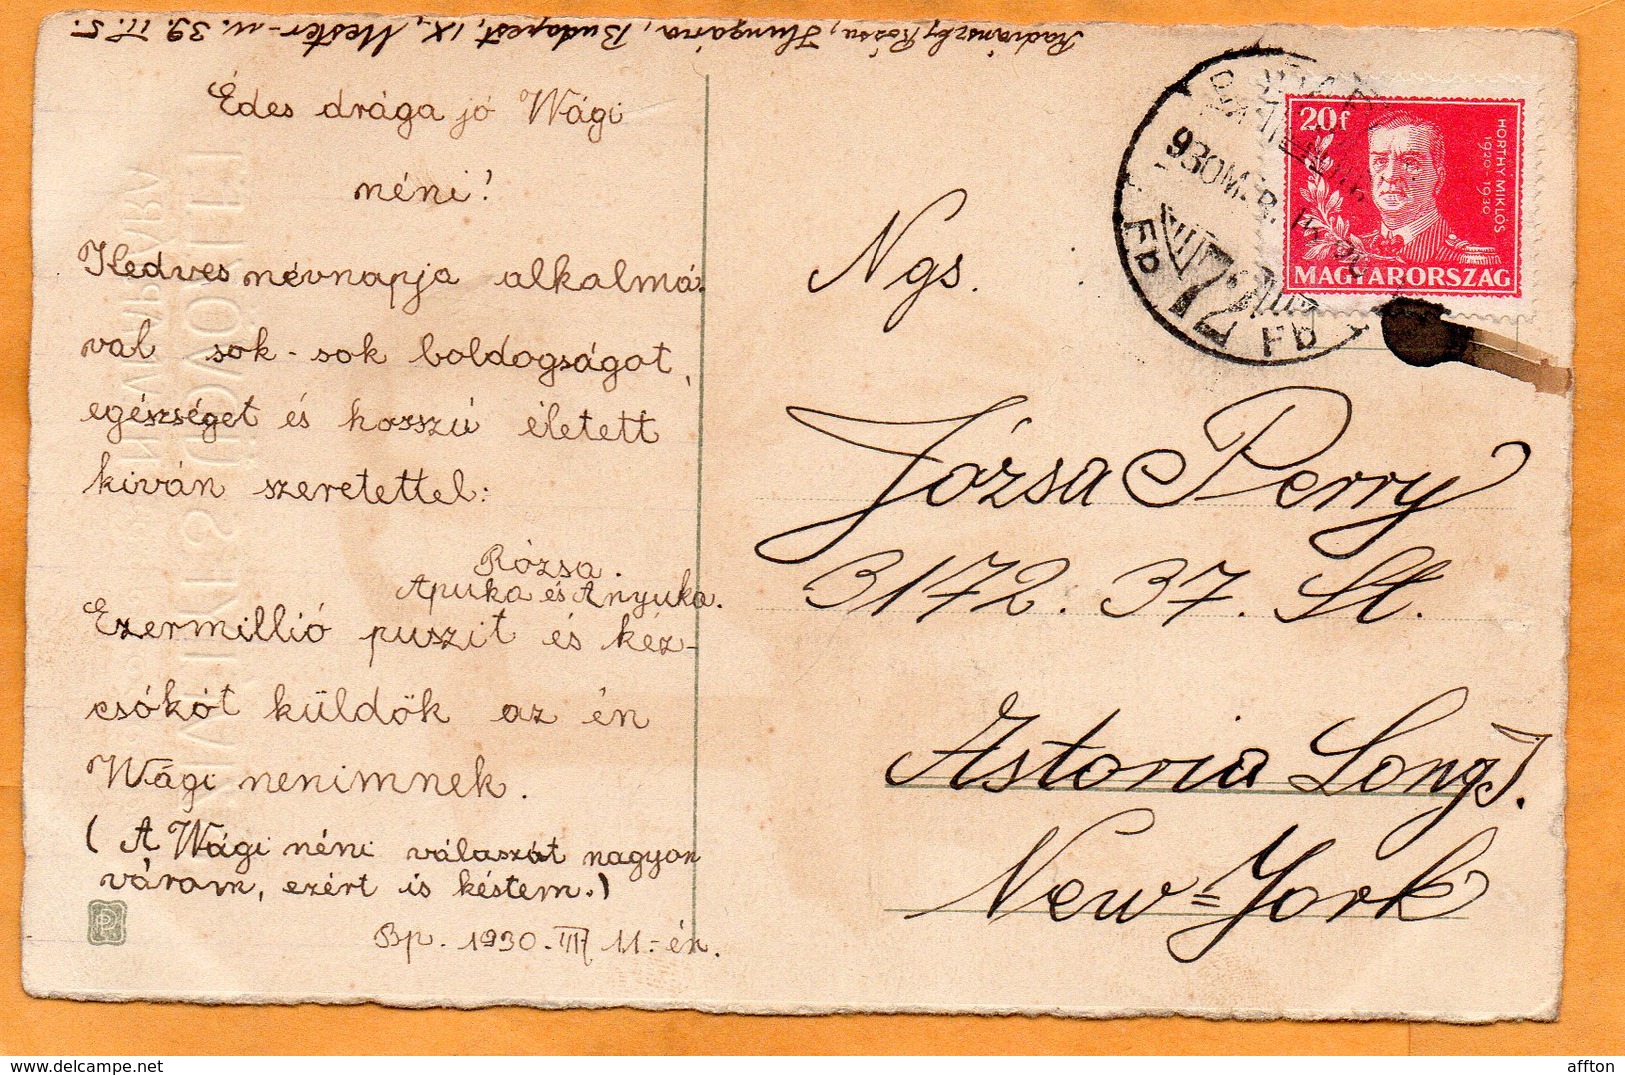 Radvánszky Rózsa, Hungária, Budapest, IX., Mester-u. 39. II. 5.
Édes drága jó Wági
néni!
Kedves névnapja alkalmá-
val sok-sok boldogságot,
egészséget és hosszú életett
kiván szeretettel:
Rózsa.
Apuka és Anyuka.
Ezermillió puszit és kéz-
csókót küldök az én
Wági nenimnek.
(A Wági néni válaszát nagyon
várom, ezért is késtem.)
Bp. 1930. III 11.-én.
Ngs.
Józsa Perry
3172. 37. St.
Astoria Long J.
New=York
20f
HORTHY MIKLÓS
1920-1930
MAGYARORSZÁG
930 MÁR.
72
affton